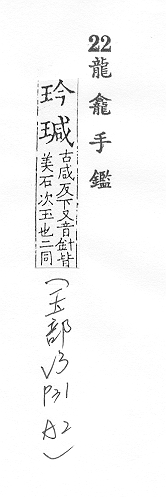 22龍龕手鑑
玲瑊
古咸反下又音針皆
美石次玉也二同
(玉部
V3
P31
A2)